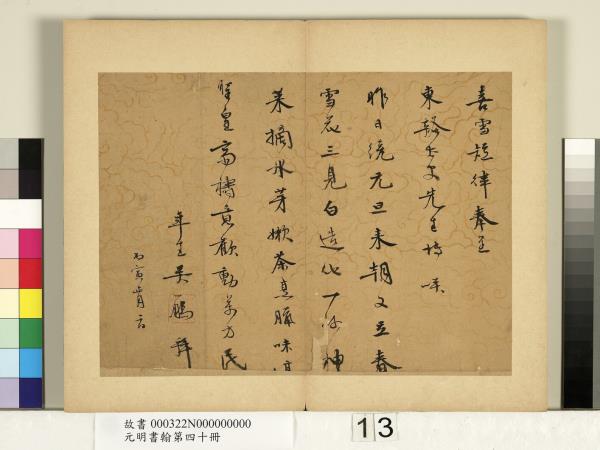 喜雪短律奉呈
東谿大丈先生博咲
昨日纔元旦來朝又立春
雪花三見白造化一何神
菜摘冰芽嫩茶烹臘味
聖皇齋禱意歡動萬方民
年生吳鵬拜
丙寅
故書 000322N000000000
元明書翰第四十冊
13